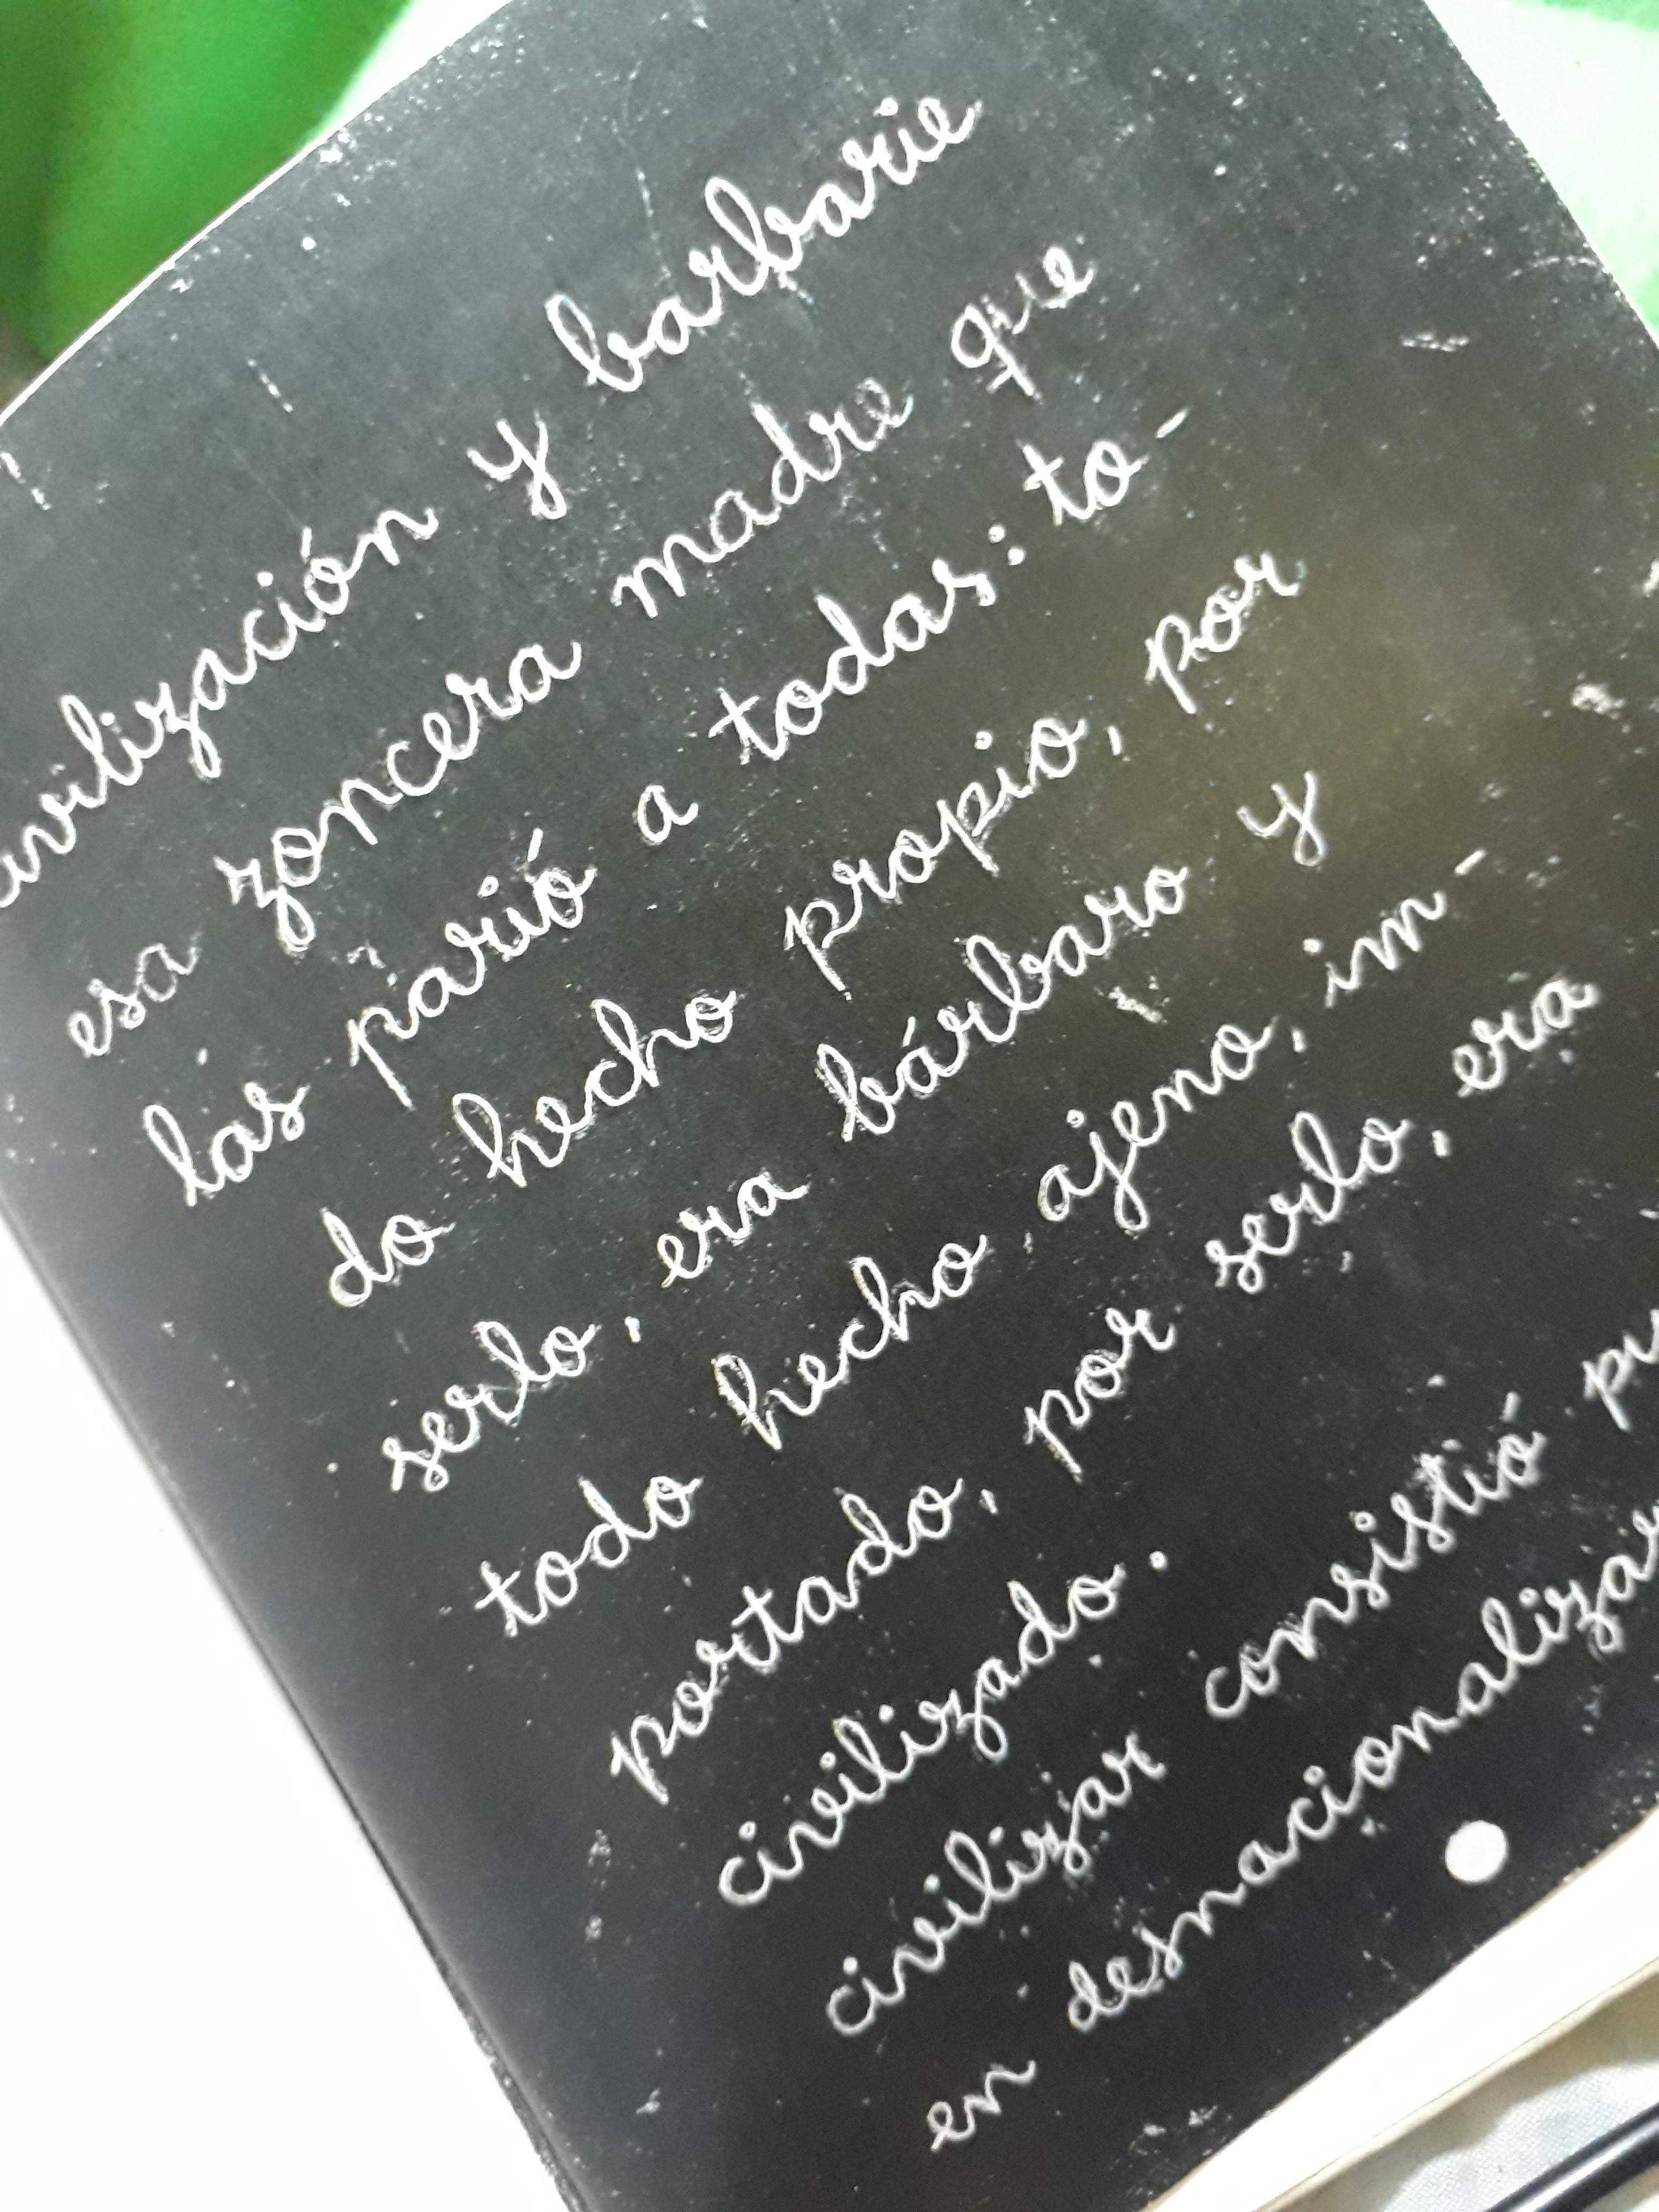 civilización y barbarie
esa zoncera madre que
las parió a todas: to-
do hecho propio, por
serlo, era bárbaro y
todo hecho ajeno, im-
portado, por serlo, era
civilizado.
civilizar consistió
en desnacionalizar